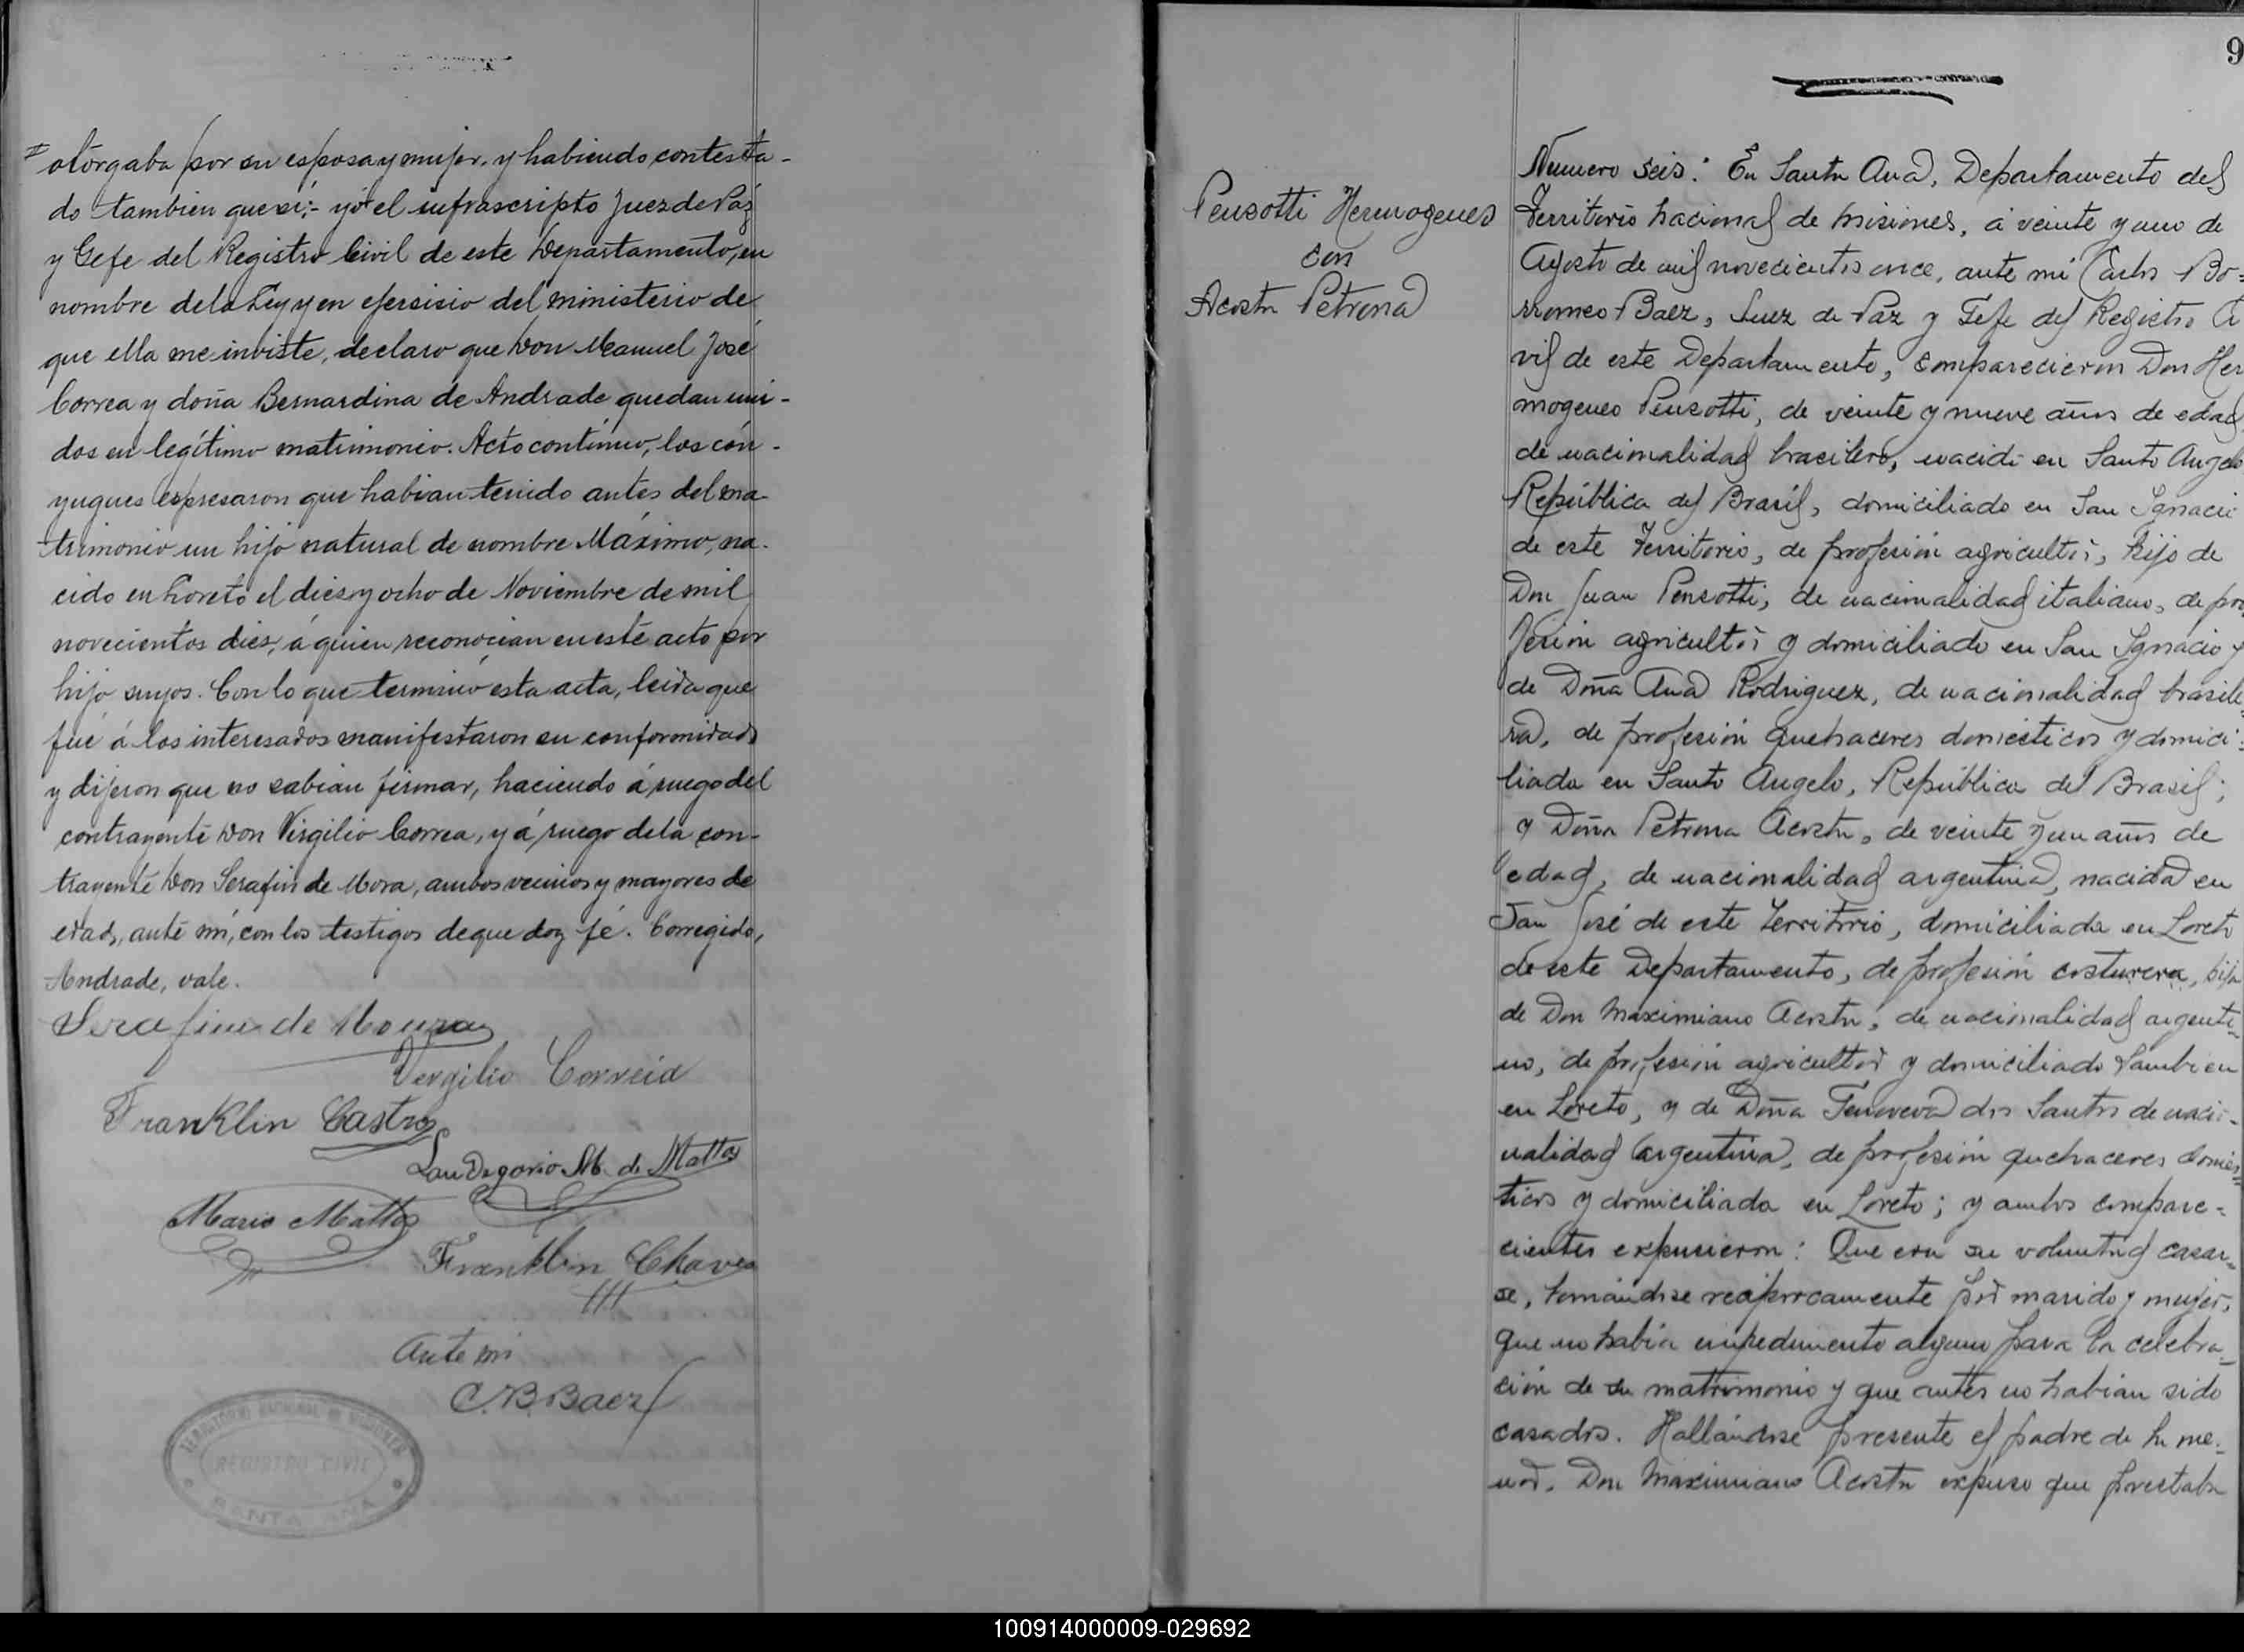 otorgaba por su esposa y mujer, y habiendo contesta-
do tambien que sí;- yó el infrascripto Juez de Páz
y Gefe del Registro Civil de este Departamento, en
nombre de la Ley y en ejersisio del ministerio de
que ella me inviste, declaro que Don Manuel José
Correa y doña Bernardina de Andrade quedan uni-
dos en legítimo matrimonio. Acto contínuo, los cón-
yugues espresaron que habian tenido antes del ma-
trimonio un hijo natural de nombre Máximo, na-
cido en Loreto el dies y ocho de Noviembre de mil
novecientos dies, á quien reconocian en este acto por
hijo suyos. Con lo que terminó esta acta, leida que
fué á los interesados manifestaron su conformidad
y dijeron que no sabian firmar, haciendo á ruego del
contrayente Don Virgilio Correa, y á ruego de la con-
trayente Don Serafin de Mora, ambos vecinos y mayores de
edad, ante mí, con los testigos de que doy fé. Corregido,
Andrade, vale.
Serafim de Moura
Vergilio Correia
Franklin Castro
Laudegario M. de Mattos
Mario Mattos
Franklin Chaves
Ante mi
C. B. Baez
TERRITORIO NACIONAL DE MISIONES
REGISTRO CIVIL
SANTA ANA
9
Pensotti Hermogenes
con
Acosta Petrona
Numero seis: En Santa Ana, Departamento del
Territorio nacional de Misiones, á veinte y uno de
Agosto de mil novecientos once, ante mi Carlos Bo=
rromeo Baez, Juez de Paz y Jefe del Registro Ci
vil de este Departamento, comparecieron Don Her
mogenes Pensotti, de veinte y nueve años de edad
de nacionalidad brasilero, nacido en Santo Angelo
República del Brasil, domiciliado en San Ignacio
de este Territorio, de profesión agricultor, hijo de
Don Juan Pensotti, de nacionalidad italiano, de pro
fesión agricultor y domiciliado en San Ignacio y
de Doña Ana Rodriguez, de nacionalidad brasile=
ra, de profesión quehaceres domésticos y domici=
liada en Santo Angelo, República del Brasil;
y Doña Petrona Acosta, de veinte y un años de
edad, de nacionalidad argentina, nacida en
San José de este Territorio, domiciliada en Loreto
de este Departamento, de profesión costurera, hija
de Don Maximiano Acosta, de nacionalidad argenti=
no, de profesión agricultor y domiciliado tambien
en Loreto, y de Doña Jenoveva dos Santos de nacio-
nalidad argentina, de profesión quehaceres domés=
ticos y domiciliada en Loreto; y ambos compare=
cientes expusieron: Que era su voluntad casar=
se, tomándose reciprocamente por marido y mujer,
que no habia impedimento alguno para la celebra=
ción de su matrimonio y que antes no habian sido
casados. Hallándose presente el padre de la me=
nor, Don Maximiano Acosta expuso que prestaba
100914000009-029692